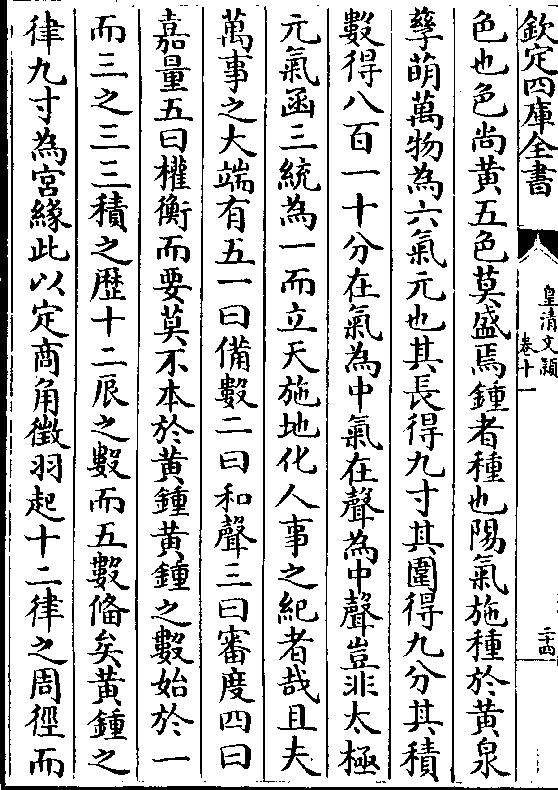 欽定四庫全書
皇清文穎
卷十一
二十四
色也色尚黃五色莫盛焉鍾者種也陽氣施種於黃泉
孳萌萬物為六氣元也其長得九寸其圍得九分其積
數得八百一十分在氣為中氣在聲為中聲豈非太極
元氣函三統為一而立天施地化人事之紀者哉且夫
萬事之大端有五一曰備數二曰和聲三曰審度四曰
嘉量五曰權衡而要莫不本於黃鍾黃鍾之數始於一
而三之三三積之歴十二辰之數而五數俻矣黃鍾之
律九寸為宮緣此以定商角徵羽起十二律之周徑而